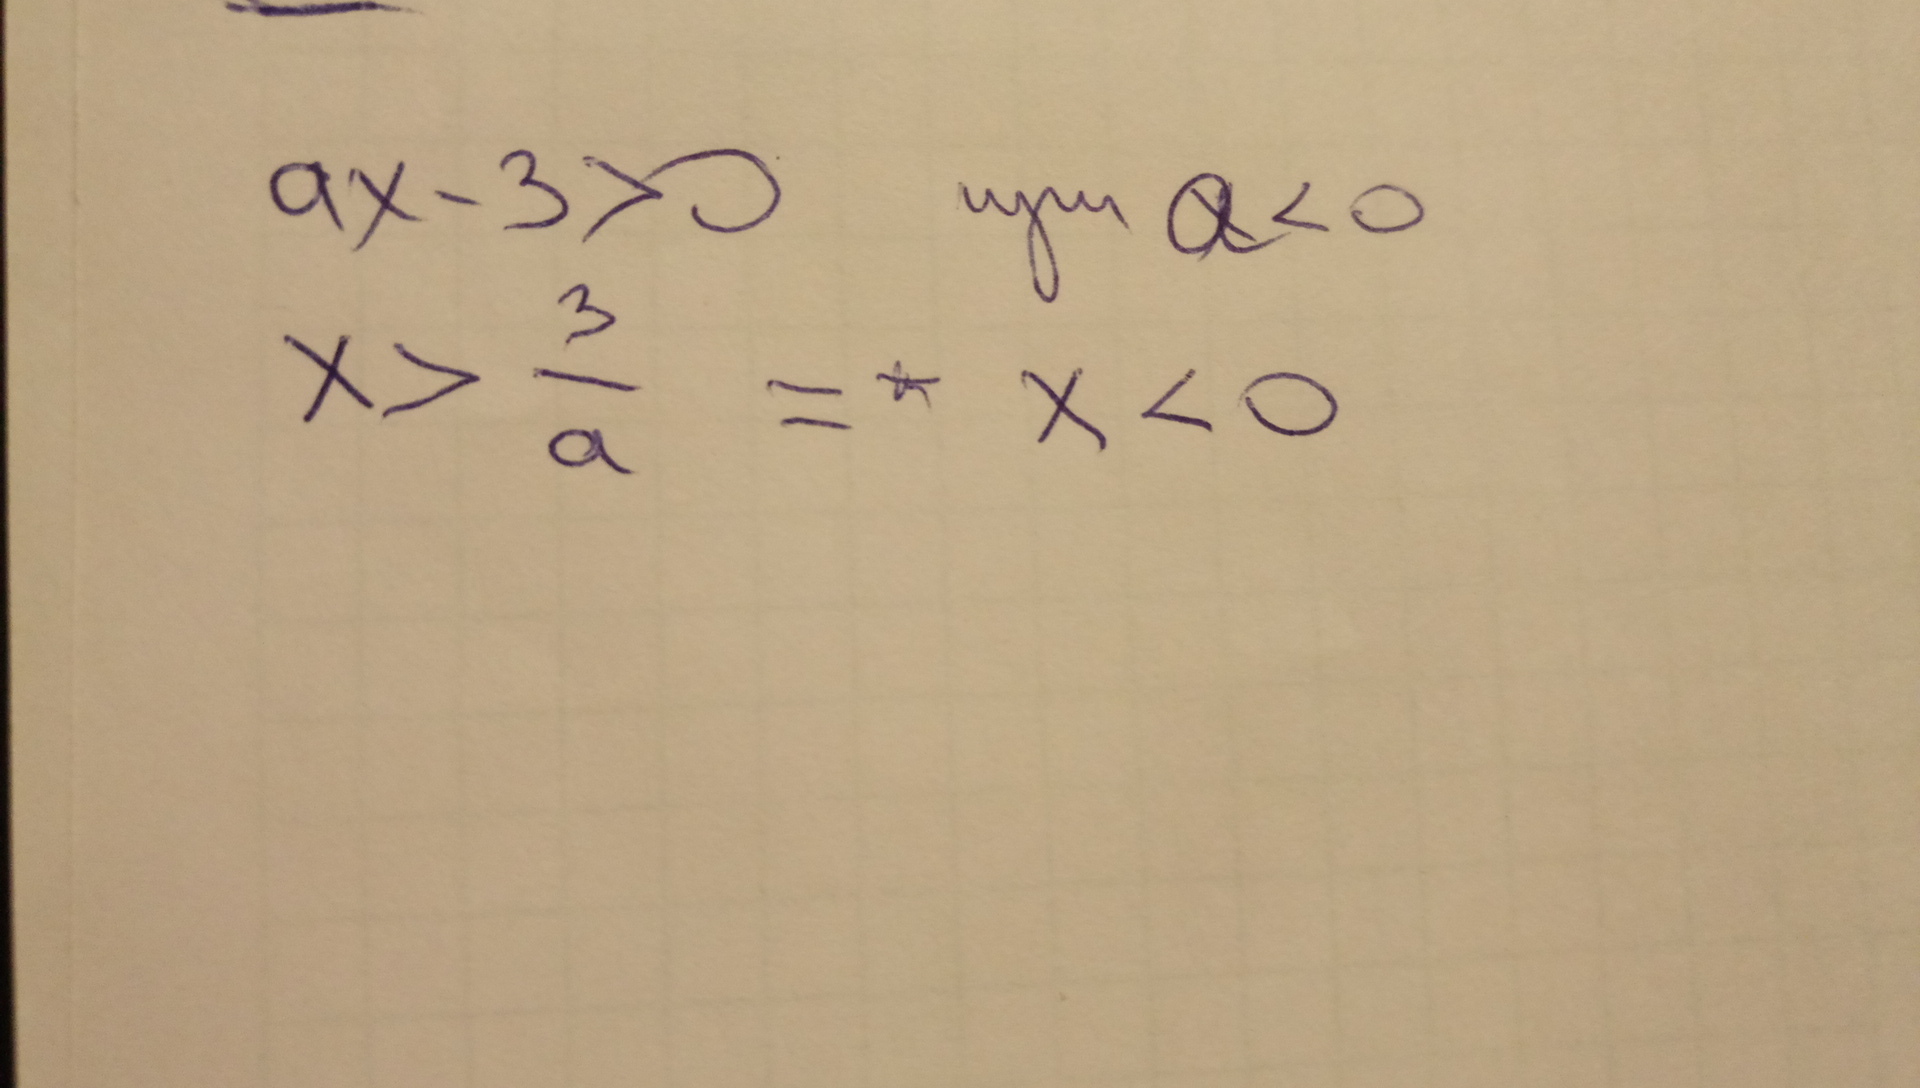 ax - 3 > 0 при a < 0
x > 3/a =* x < 0